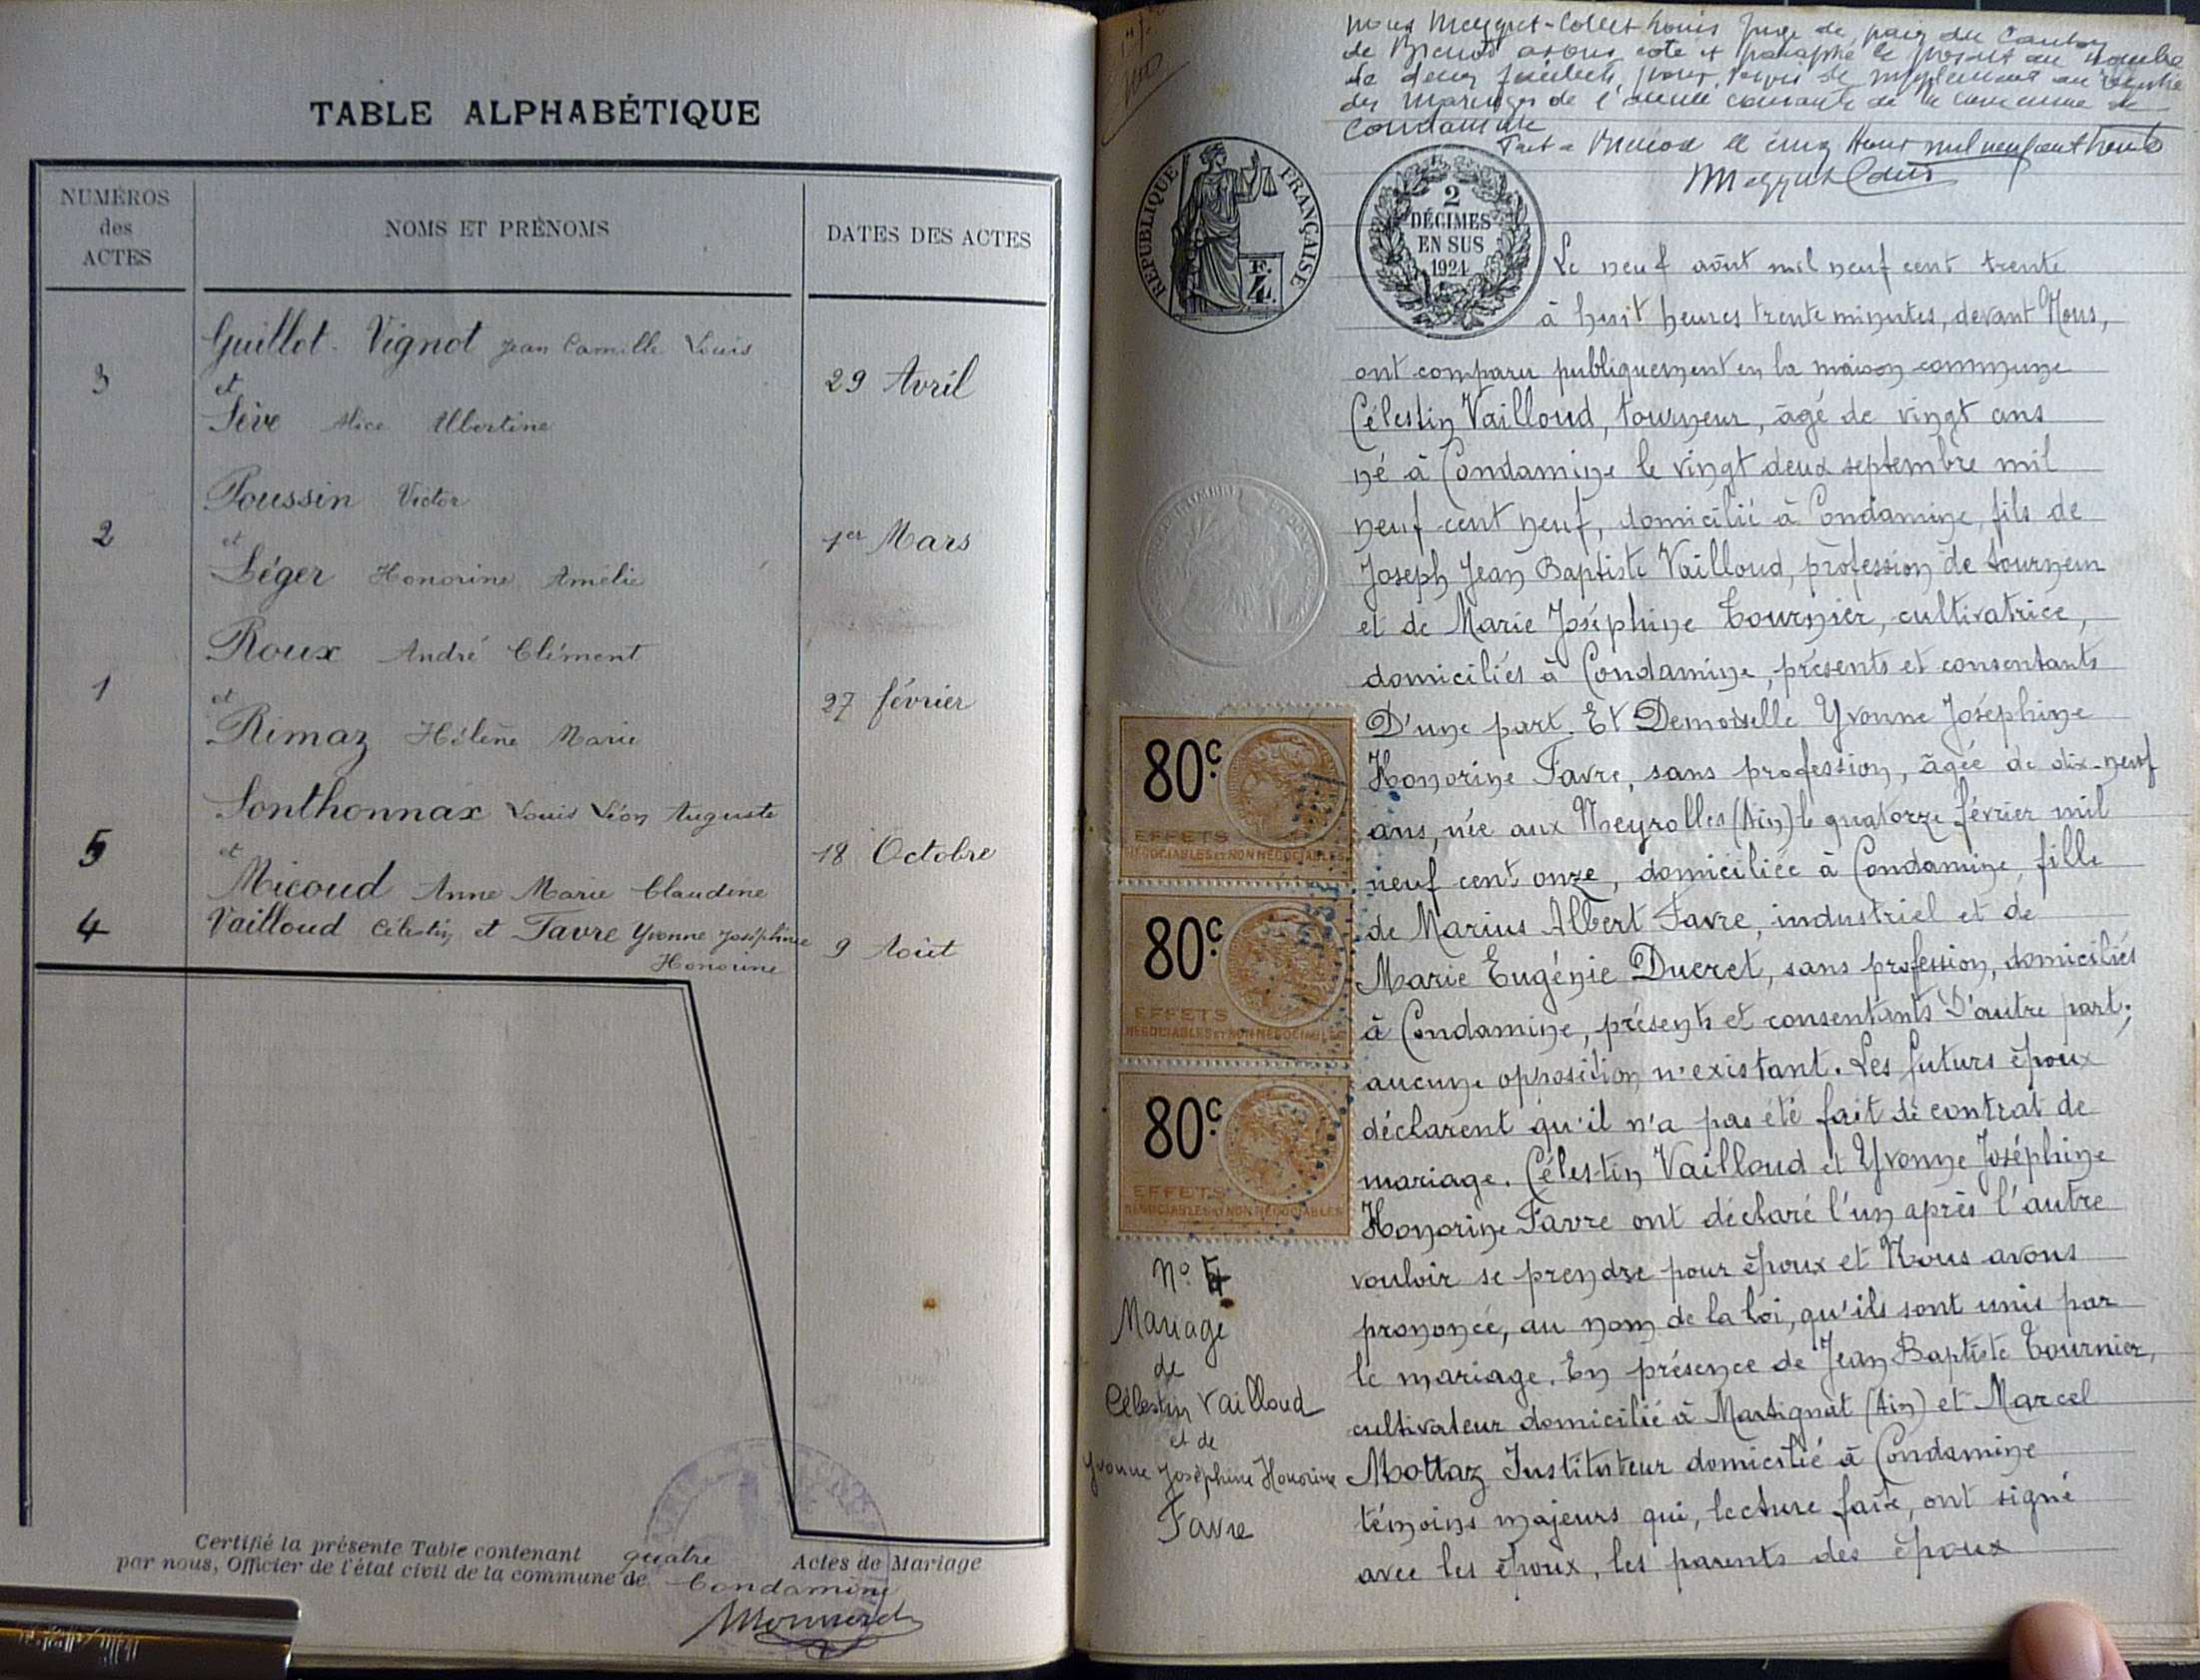 TABLE ALPHABÉTIQUE
NUMÉROS
des
ACTES
NOMS ET PRÉNOMS
DATES DES ACTES
Guillot-Vignot Jean Camille Louis
3
et
29 Avril
Sève Alice Albertine
Poussin Victor
2
et
1er Mars
Léger Honorine Amélie
Roux André Clément
1
et
27 février
Rimaz Hélène Marie
Sonthonnax Louis Léon Auguste
5
et
18 Octobre
Micoud Anne Marie Claudine
4
Vailloud Célestin et Favre Yvonne Joséphine
Honorine
9 Août
Certifié la présente Table contenant quatre Actes de Mariage
par nous, Officier de l'état civil de la commune de Condamine
Nous Meygret-Collet Louis juge de paix du Canton
de avons coté et paraphé le présent au nombre
de deux pour servir de supplément au registre
des Mariages de l'année courante de la commune de
Condamine
Fait à le cinq Août mil neuf cent trente
RÉPUBLIQUE FRANÇAISE
F.
4.
2
DÉCIMES
EN SUS
1924
Le neuf août mil neuf cent trente
à huit heures trente minutes, devant Nous,
ont comparu publiquement en la maison commune
Célestin Vailloud, tourneur, âgé de vingt ans
né à Condamine le vingt deux septembre mil
neuf cent neuf, domicilié à Condamine, fils de
Joseph Jean Baptiste Vailloud, profession de tourneur
et de Marie Joséphine Tournier, cultivatrice,
domiciliés à Condamine, présents et consentants
D'une part. Et Demoiselle Yvonne Joséphine
Honorine Favre, sans profession, âgée de dix-neuf
ans, née aux Neyrolles (Ain) le quatorze février mil
neuf cent onze, domiciliée à Condamine, fille
de Marius Albert Favre, industriel et de
Marie Eugénie Ducret, sans profession, domiciliés
à Condamine, présents et consentants D'autre part;
aucune opposition n'existant. Les futurs époux
déclarent qu'il n'a pas été fait de contrat de
mariage. Célestin Vailloud et Yvonne Joséphine
Honorine Favre ont déclaré l'un après l'autre
vouloir se prendre pour époux et Nous avons
prononcé, au nom de la loi, qu'ils sont unis par
le mariage. En présence de Jean Baptiste Tournier,
cultivateur domicilié à Martignat (Ain) et Marcel
Mottaz Instituteur domicilié à Condamine
témoins majeurs qui, lecture faite, ont signé
avec les époux, les parents des époux
80c
EFFETS
NÉGOCIABLES ET NON NÉGOCIABLES
80c
EFFETS
NÉGOCIABLES ET NON NÉGOCIABLES
80c
EFFETS
NÉGOCIABLES ET NON NÉGOCIABLES
No 4
Mariage
de
Célestin Vailloud
et de
Yvonne Joséphine Honorine
Favre